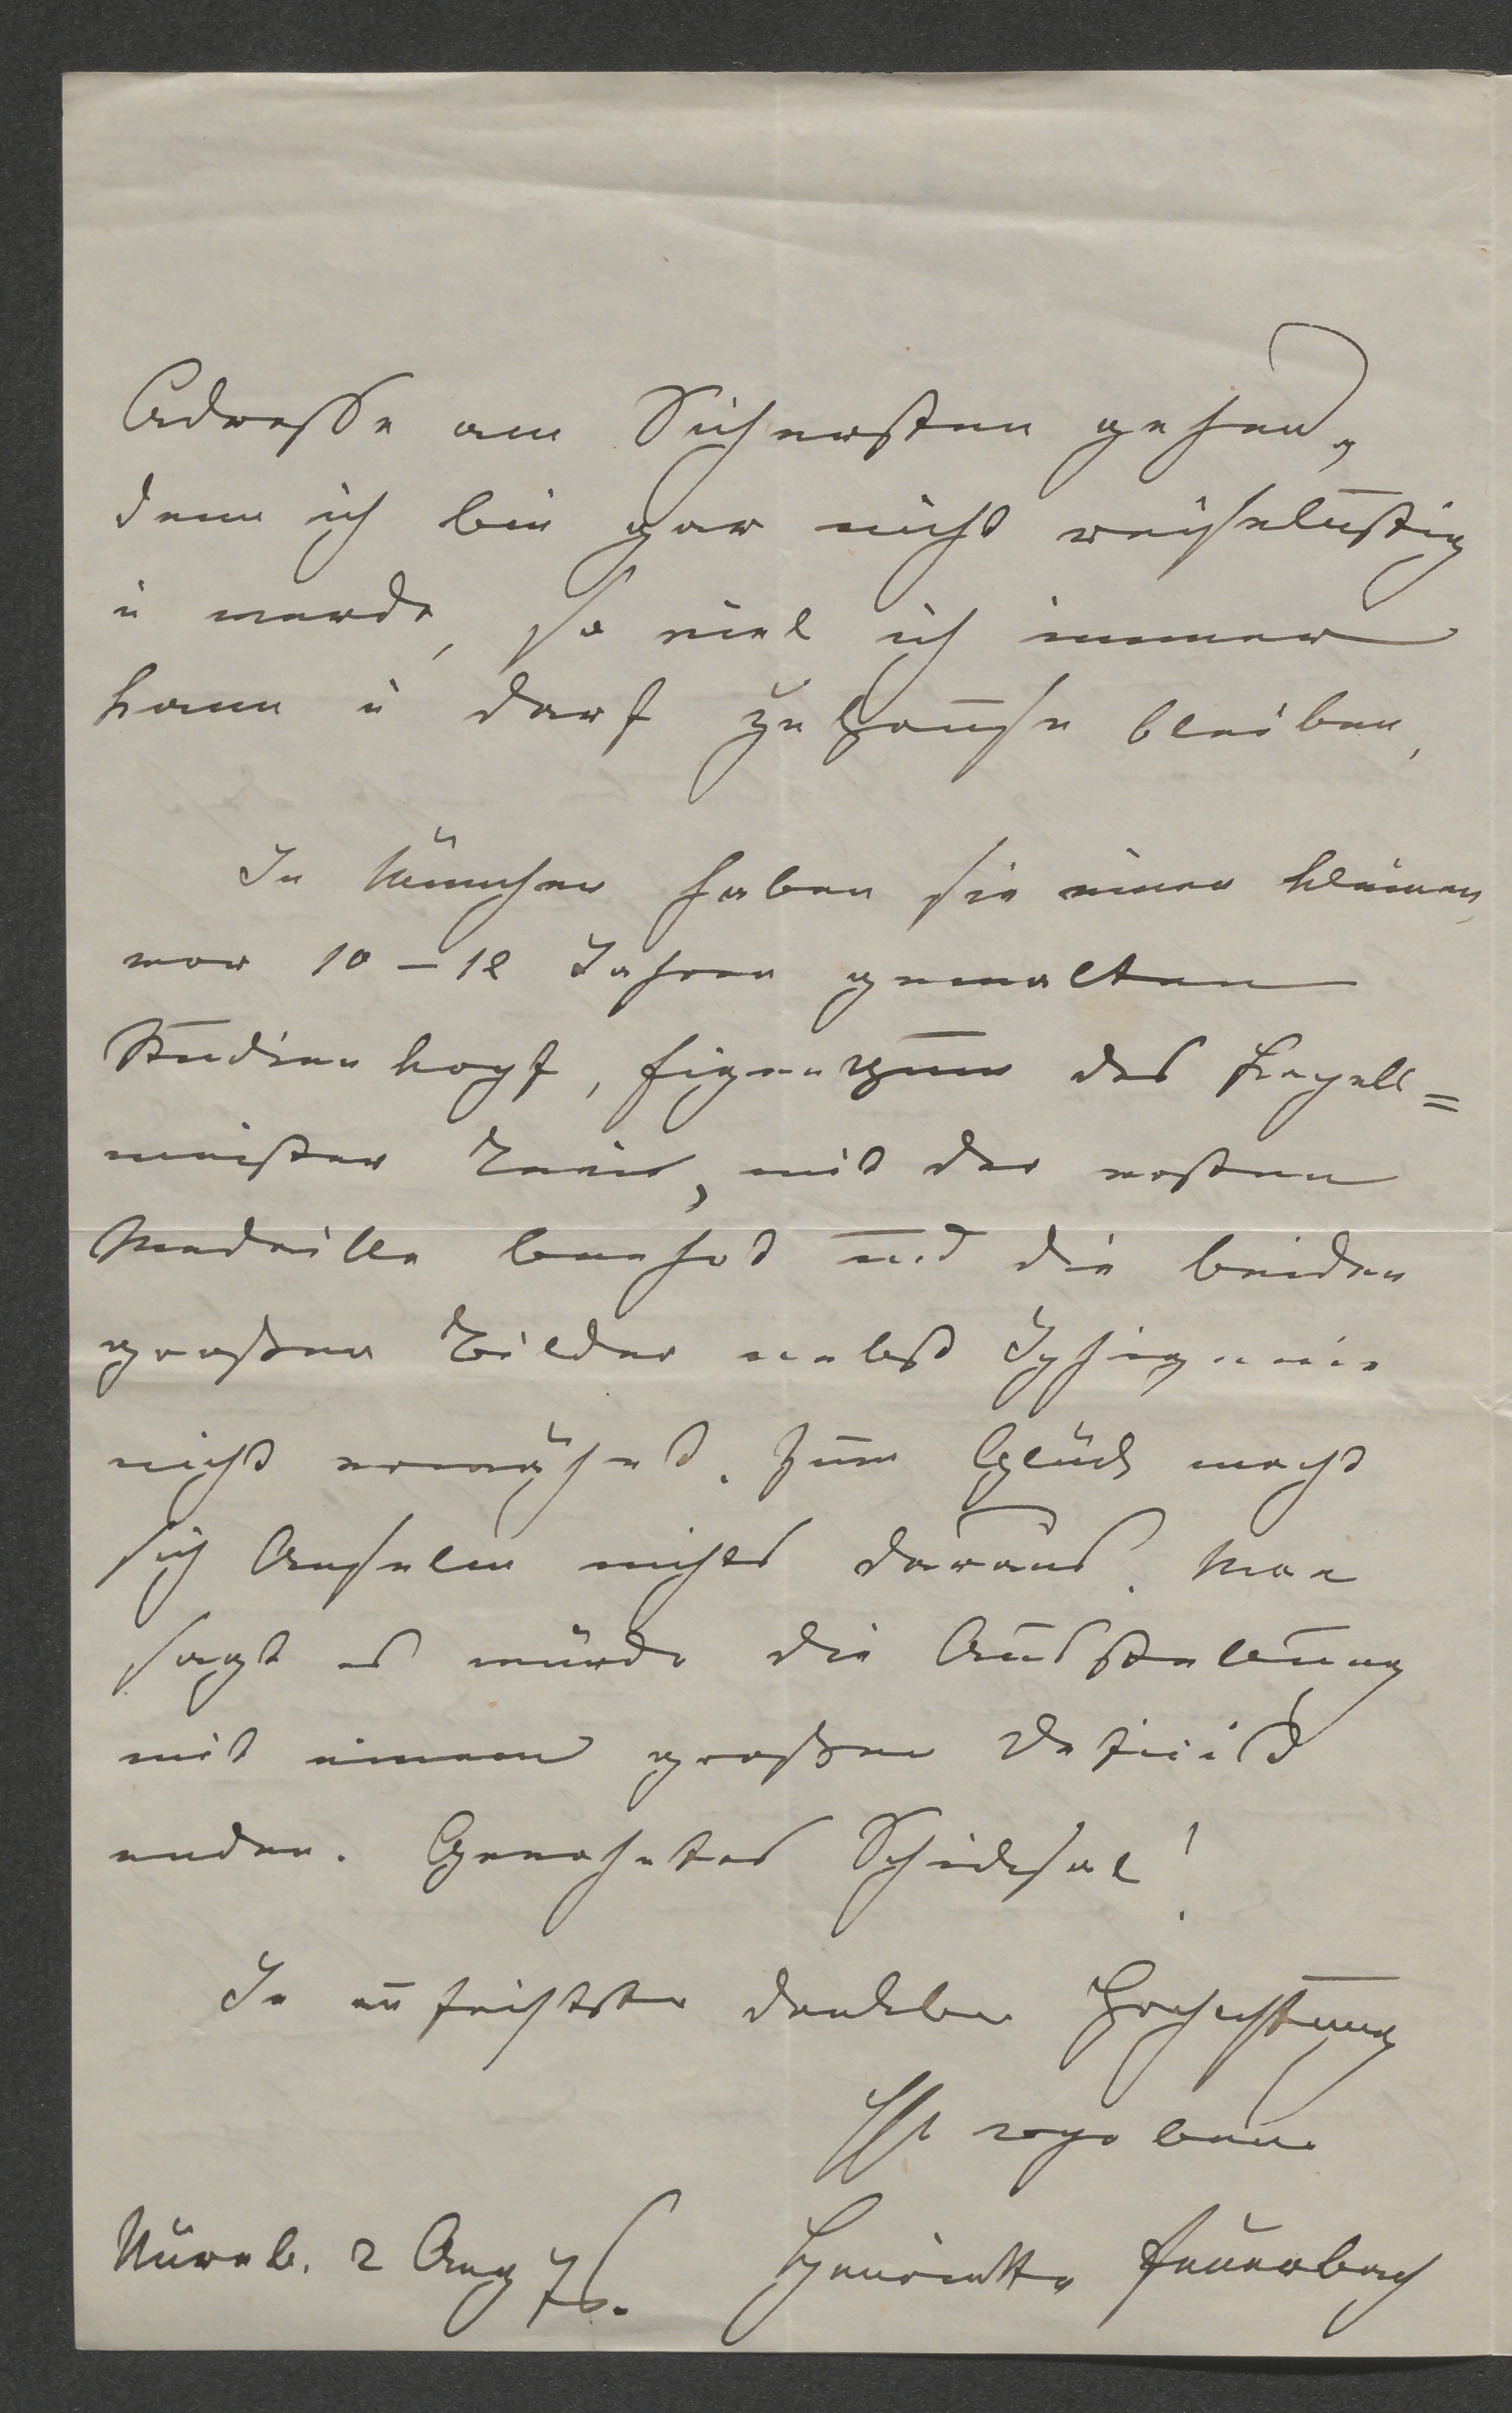 Adresse am Sichersten gehen,
denn ich bin gar nicht reiselustig
u werde, so viel ich immer
kann u darf zu Hause bleiben,
In München haben sie einen kleinen,
vor 10 – 12 Jahren gemalten
Studienkopf, Eigenthum des Kapell=
meister Levi, mit der ersten
Medaille bee​hrt und die beiden
großen Bilder nebst Iphigenie
nicht erwähnt. Zum Glück macht
sich Anselm nichts daraus. Man
sagt es würde die Ausstellung
mit einem großen Deficit
enden. Gerechtes Schicksal!
In aufrichtster dankbarer Hochachtung
Ihr ergebene
Nürnb. 2 Aug 76. Henriette Feuerbach